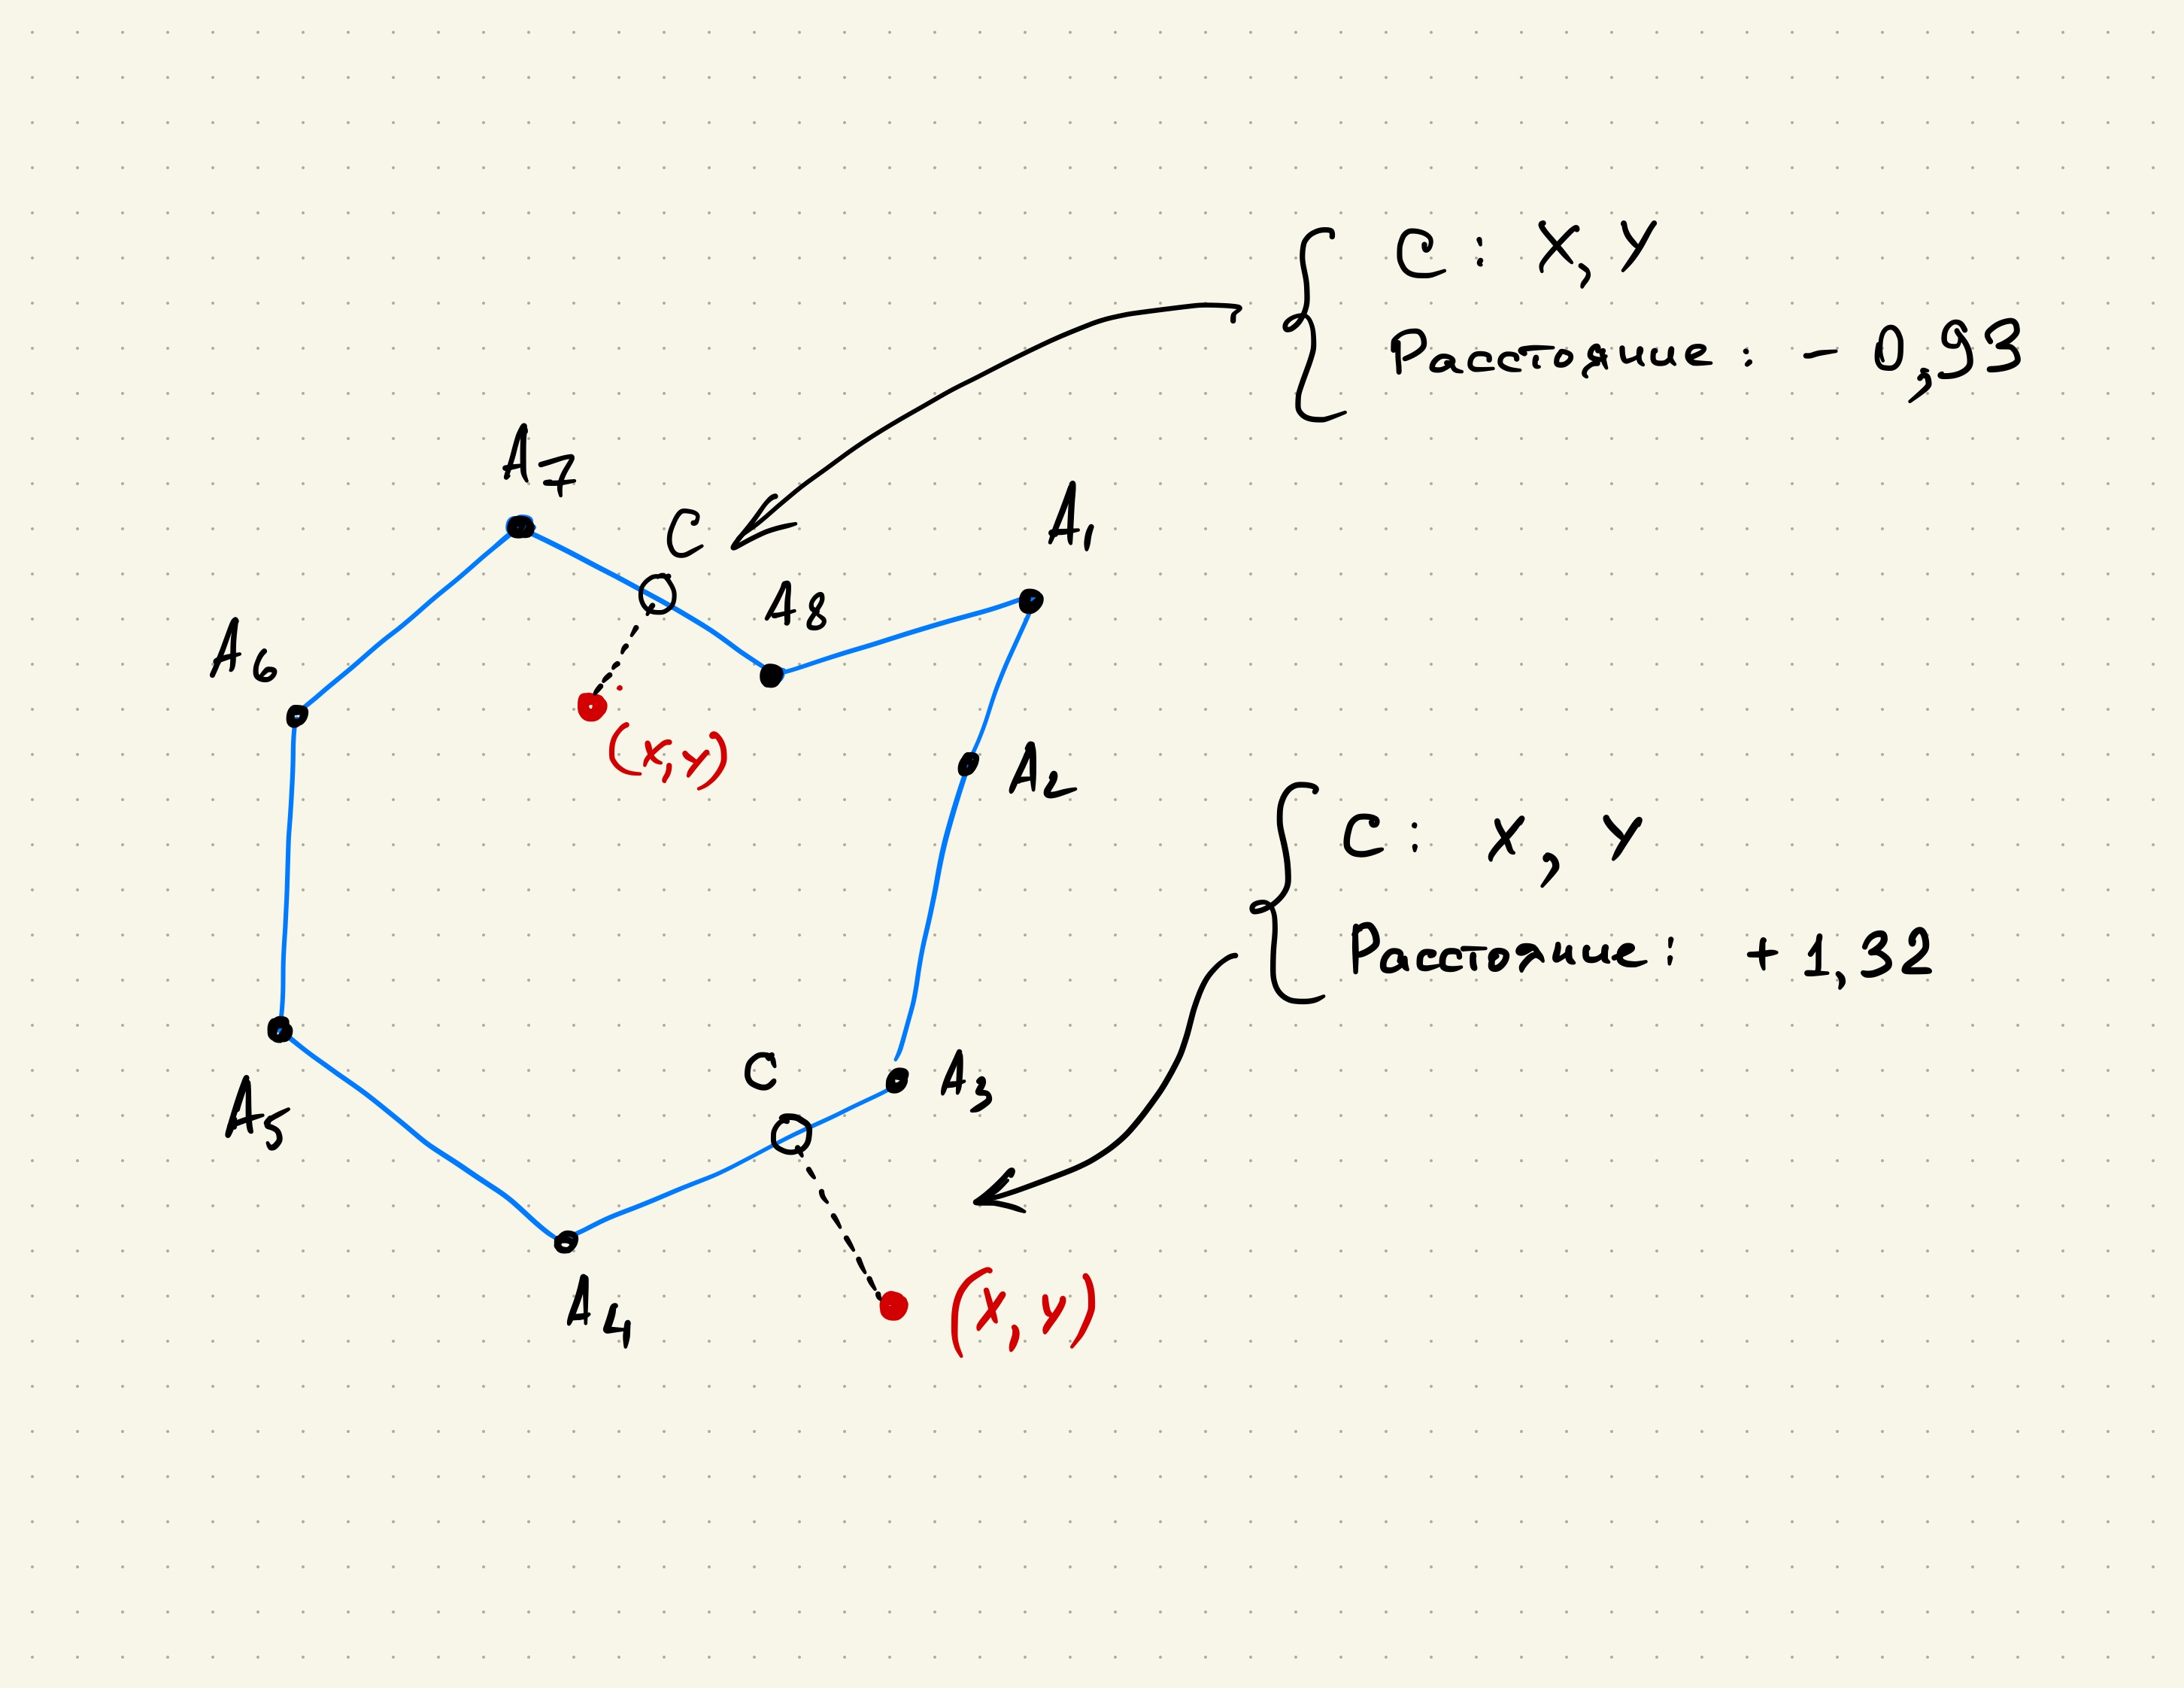 C : X, Y
Расстояние : - 0,93
A7
C
A1
A8
A6
(x, y)
A2
C : X, Y
Расстояние : + 1,32
C
A3
A5
A4
(x, y)